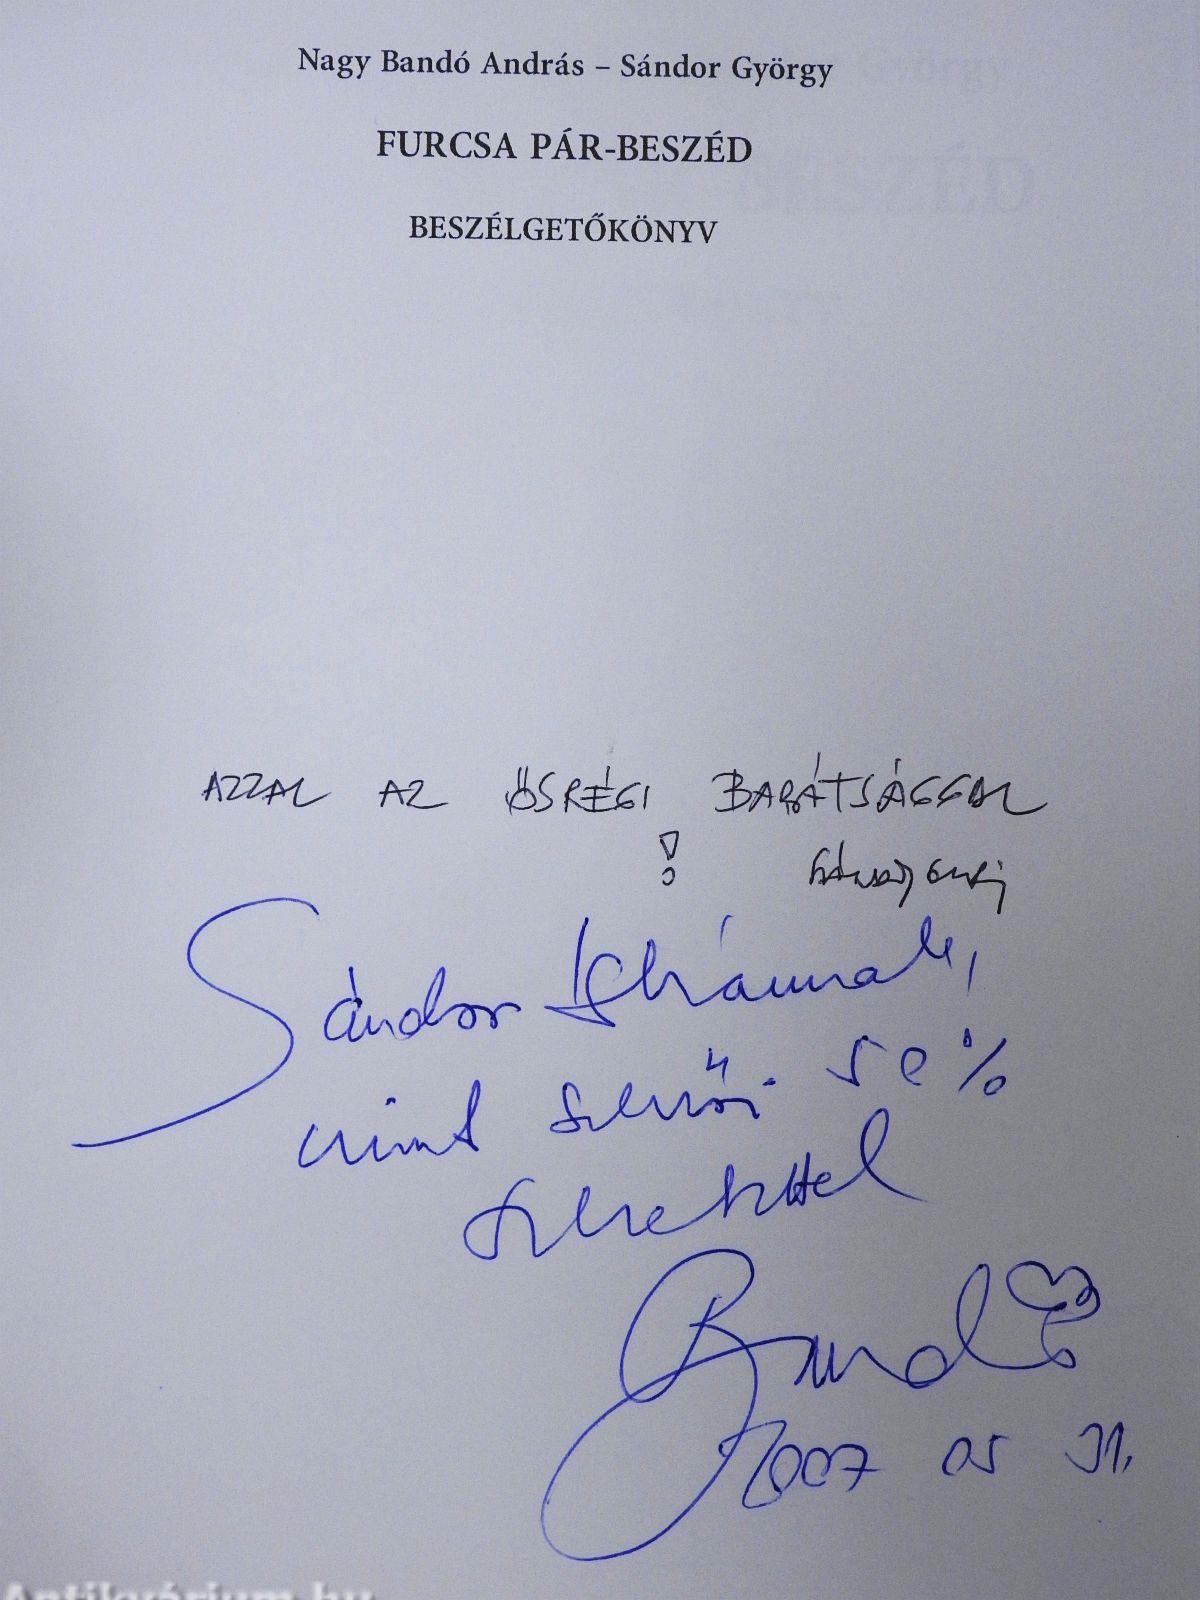 Nagy Bandó András – Sándor György
FURCSA PÁR-BESZÉD
BESZÉLGETŐKÖNYV
AZZAL AZ ŐSRÉGI BARÁTSÁGGAL
!
Sándor György
Sándor Istvánnak,
mint szerzői 50%
szeretettel
Bandó
2007 05 31.
Antikvárium.hu